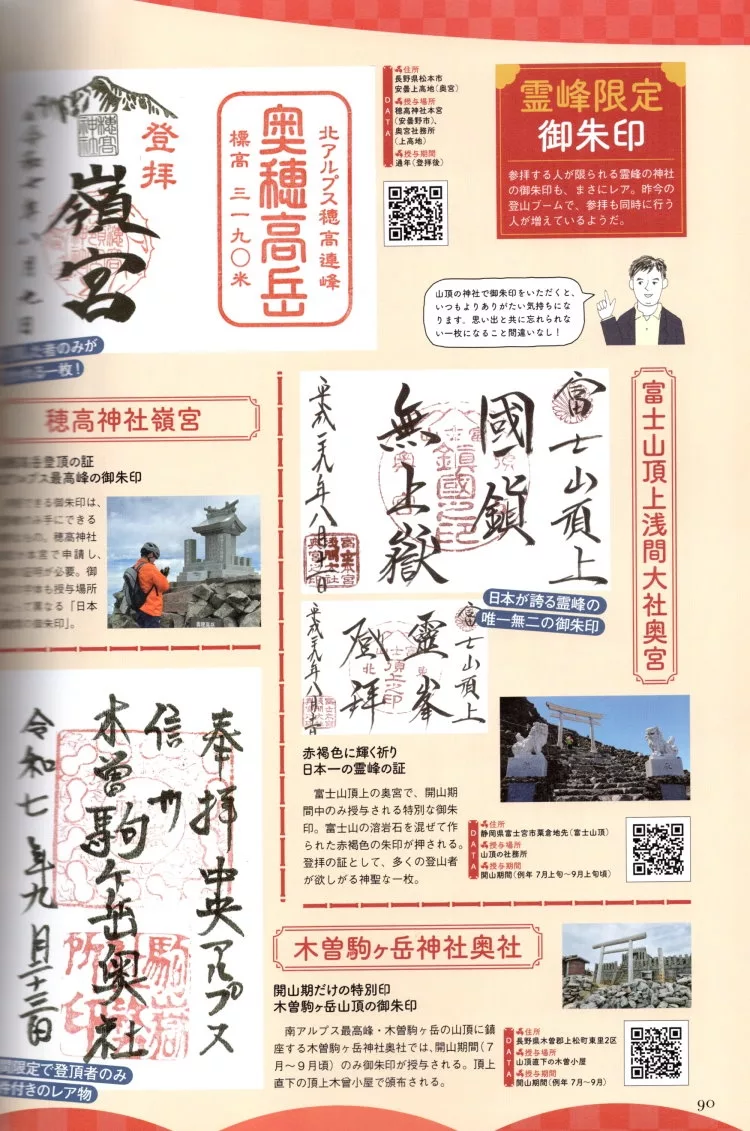 霊峰限定
御朱印
参拝する人が限られる霊峰の神社
の御朱印も、まさにレア。昨今の
登山ブームで、参拝も同時に行う
人が増えているようだ。
山頂の神社で御朱印をいただくと、
いつもよりありがたい気持ちにな
ります。思い出と共に忘れられな
い一枚になること間違いなし!
DATA
住所
長野県松本市
安曇上高地(奥宮)
授与場所
穂高神社本宮
(安曇野市)、
奥宮社務所
(上高地)
授与期間
通年(登拝後)
北アルプス穂高連峰
奥穂高岳
標高 三一九〇米
登拝
穂髙神社
嶺宮
令和七年八月七日
者のみが
る一枚!
穂高神社嶺宮
岳登頂の証
アルプス最高峰の御朱印
できる御朱印は、
み手にできる
もの。穂高神社
本宮で申請し、
証明が必要。御
字体も授与場所
って異なる「日本
の御朱印」。
富士山頂上浅間大社奥宮
富士山頂上
國鎮
無上嶽
鎮國之印
平成二九年八月十二日
日本が誇る霊峰の
唯一無二の御朱印
富士山頂上
靈峯
登拜
頂上之印
平成二九年八月十二日
赤褐色に輝く祈り
日本一の霊峰の証
富士山頂上の奥宮で、開山期
間中のみ授与される特別な御朱
印。富士山の溶岩石を混ぜて作
られた赤褐色の朱印が押される。
登拝の証として、多くの登山者
が欲しがる神聖な一枚。
DATA
住所
静岡県富士宮市粟倉地先(富士山頂)
授与場所
山頂の社務所
授与期間
開山期間(例年 7月上旬~9月上旬頃)
奉拝 中央アルプス
信州
木曽駒ヶ岳奥社
令和七年九月二十三日
限定で登頂者のみ
付きのレア物
木曽駒ヶ岳神社奥社
開山期だけの特別印
木曽駒ヶ岳山頂の御朱印
南アルプス最高峰・木曽駒ヶ岳の山頂に鎮
座する木曽駒ヶ岳神社奥社では、開山期間(7
月~9月頃)のみ御朱印が授与される。頂上
直下の頂上木曾小屋で頒布される。
DATA
住所
長野県木曽郡上松町東里2区
授与場所
山頂直下の木曽小屋
授与期間
開山期間(例年 7月~9月)
90